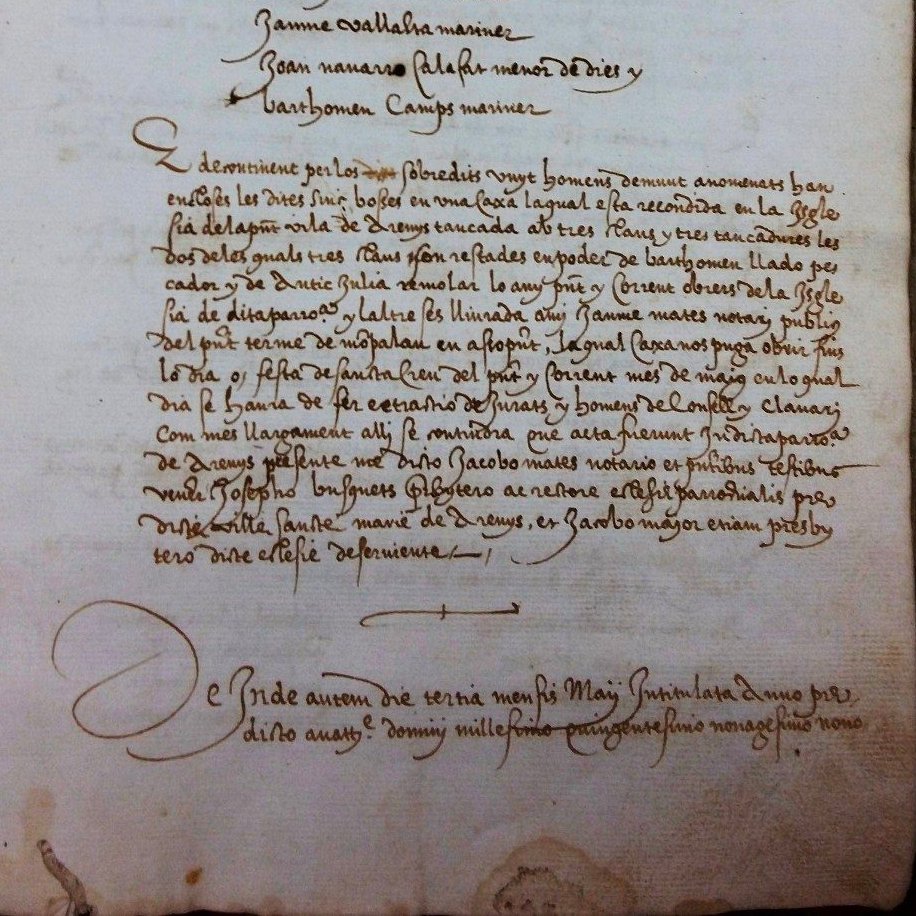 Jaume vallalta mariner
Joan navarro Calafat menor de dies y
barthomeu Camps mariner
E decontinent per los sobredits vuyt homens demunt anomenats han
encloses les dites sinc bosses en una Caxa laqual esta recondida en la Isgle
sia dela pnt vila de Arenys tancada ab tres Claus y tres tancadures les
dos deles quals tres Claus son restades en poder de barthomeu llado pes
cador y de Antic Julia remolar lo any pnt y Corrent obrers de la Isgle
sia de dita parroa y laltre ses lliurada a mi Jaume mates notari publig
del pnt terme de mopalau en assopnt, laqual Caxa nos puga obrir fins
lo dia o, festa de sancta Creu del pnt y Corrent mes de maig en lo qual
dia se haura de fer extractio de Jurats y homens de Consell y Clavari
Com mes llargament alli se contindra que acta fuerunt In dicta parroa
de Arenys presente me dicto Jacobo mates notario et pntibus testibus
vener Josepho busquets prbytero ac rectore eclesie parrochialis pre
dicte ville sancte marie de Arenys, et Jacobo major etiam presby
tero dicte eclesie deserviente
De Inde autem die tertia mensis Maij Intitulata Anno pre
dicto a natte domini millesimo quingentesimo nonagesimo nono